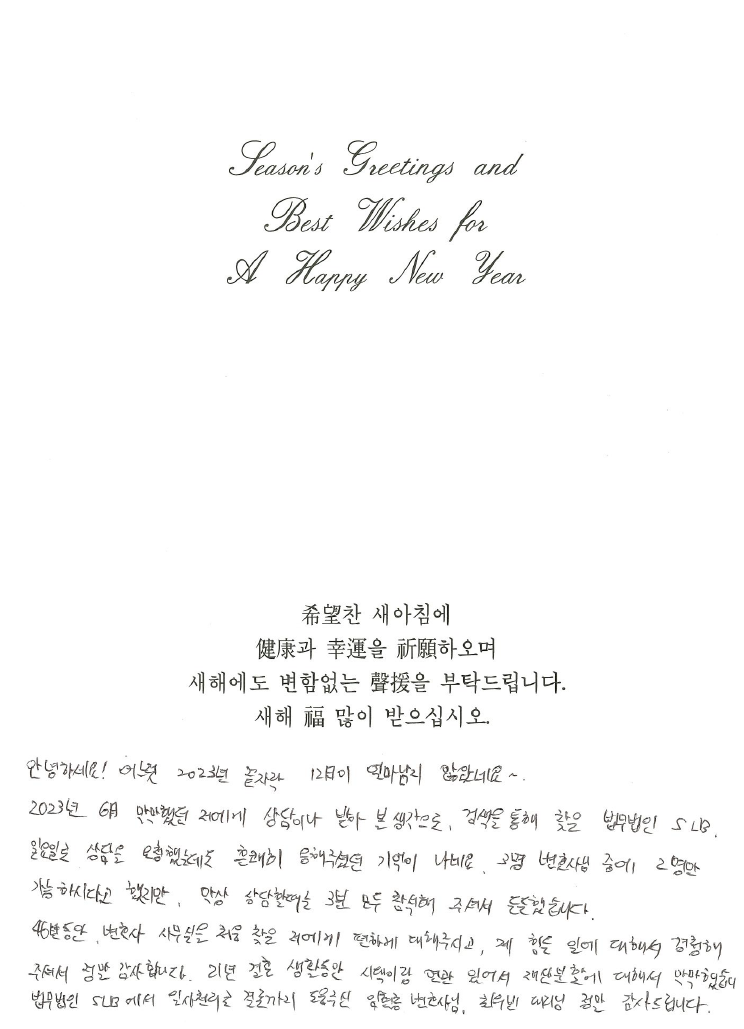 Season's Greetings and
Best Wishes for
A Happy New Year
希望찬 새아침에
健康과 幸運을 祈願하오며
새해에도 변함없는 聲援을 부탁드립니다.
새해 福 많이 받으십시오.
안녕하세요! 어느덧 2023년 끝자락 12月이 얼마남지 않았네요~.
2023년 6月 막막했던 저에게 상담이나 받아 본 생각으로, 검색을 통해 찾은 법무법인 SLB.
일요일로 상담을 요청했는데도 흔쾌히 응해주셨던 기억이 나네요. 3명 변호사님 중에 2명만
가능하시다고 했지만, 막상 상담할때는 3분 모두 참석해 주셔서 든든했습니다.
46년동안, 변호사 사무실을 처음 찾은 저에게 편하게 대해주시고, 제 힘든 일에 대해서 경청해
주셔서 정말 감사합니다. 21년 결혼 생활동안 시댁이랑 연관 있어서 재산분할에 대해서 막막했습니
법무법인 SLB에서 일사천리로 결론까지 도움주신 변호사님, 대리님 정말 감사드립니다.